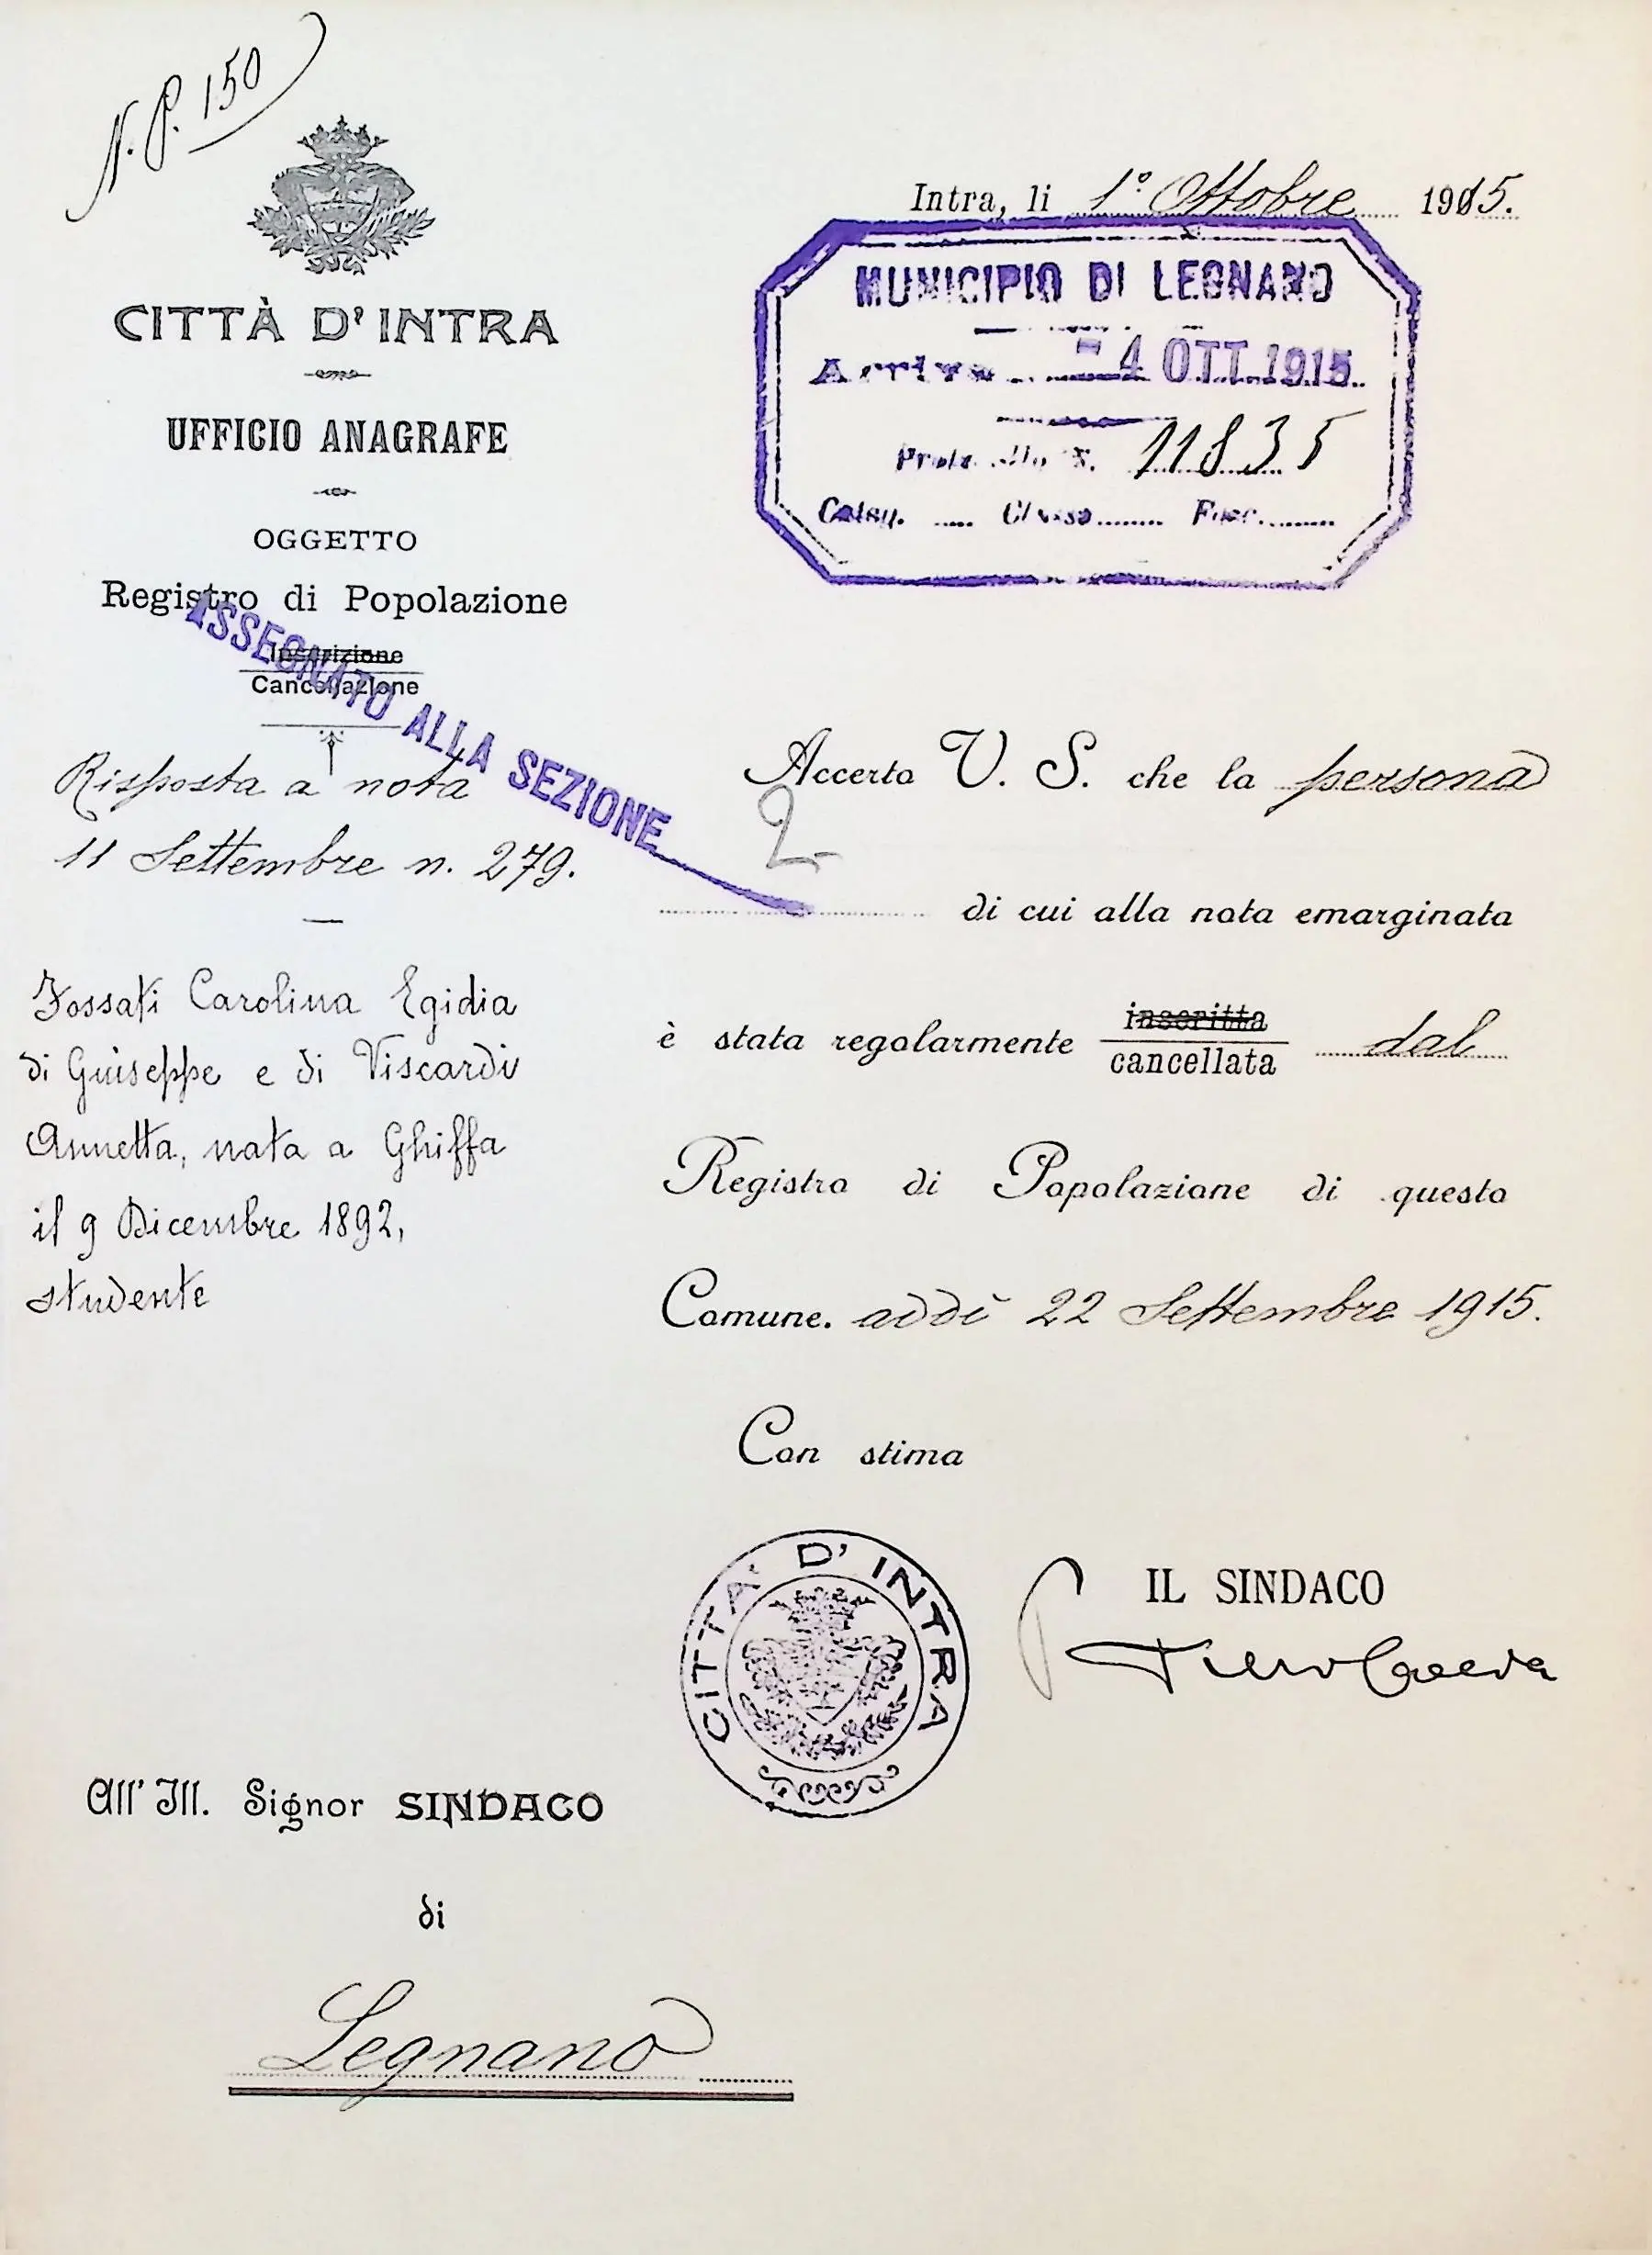 N. P. 150
CITTÀ D'INTRA
UFFICIO ANAGRAFE
OGGETTO
Registro di Popolazione
Inscrizione
Cancellazione
Risposta a nota
11 Settembre n. 279.
Fossati Carolina Egidia
di Guiseppe e di Viscardi
Annetta, nata a Ghiffa
il 9 Dicembre 1892,
studente
ASSEGNATO ALLA SEZIONE
2
Intra, li 1° Ottobre 1915.
MUNICIPIO DI LEGNANO
Arrivo - 4 OTT. 1915
Protocollo N. 11835
Categ. Classe Fasc.
Accerto V. S. che la persona
di cui alla nota emarginata
è stata regolarmente inscritta
cancellata dal
Registro di Popolazione di questo
Comune. addì 22 Settembre 1915.
Con stima
CITTA' D' INTRA
IL SINDACO
All' Ill. Signor SINDACO
di
Legnano